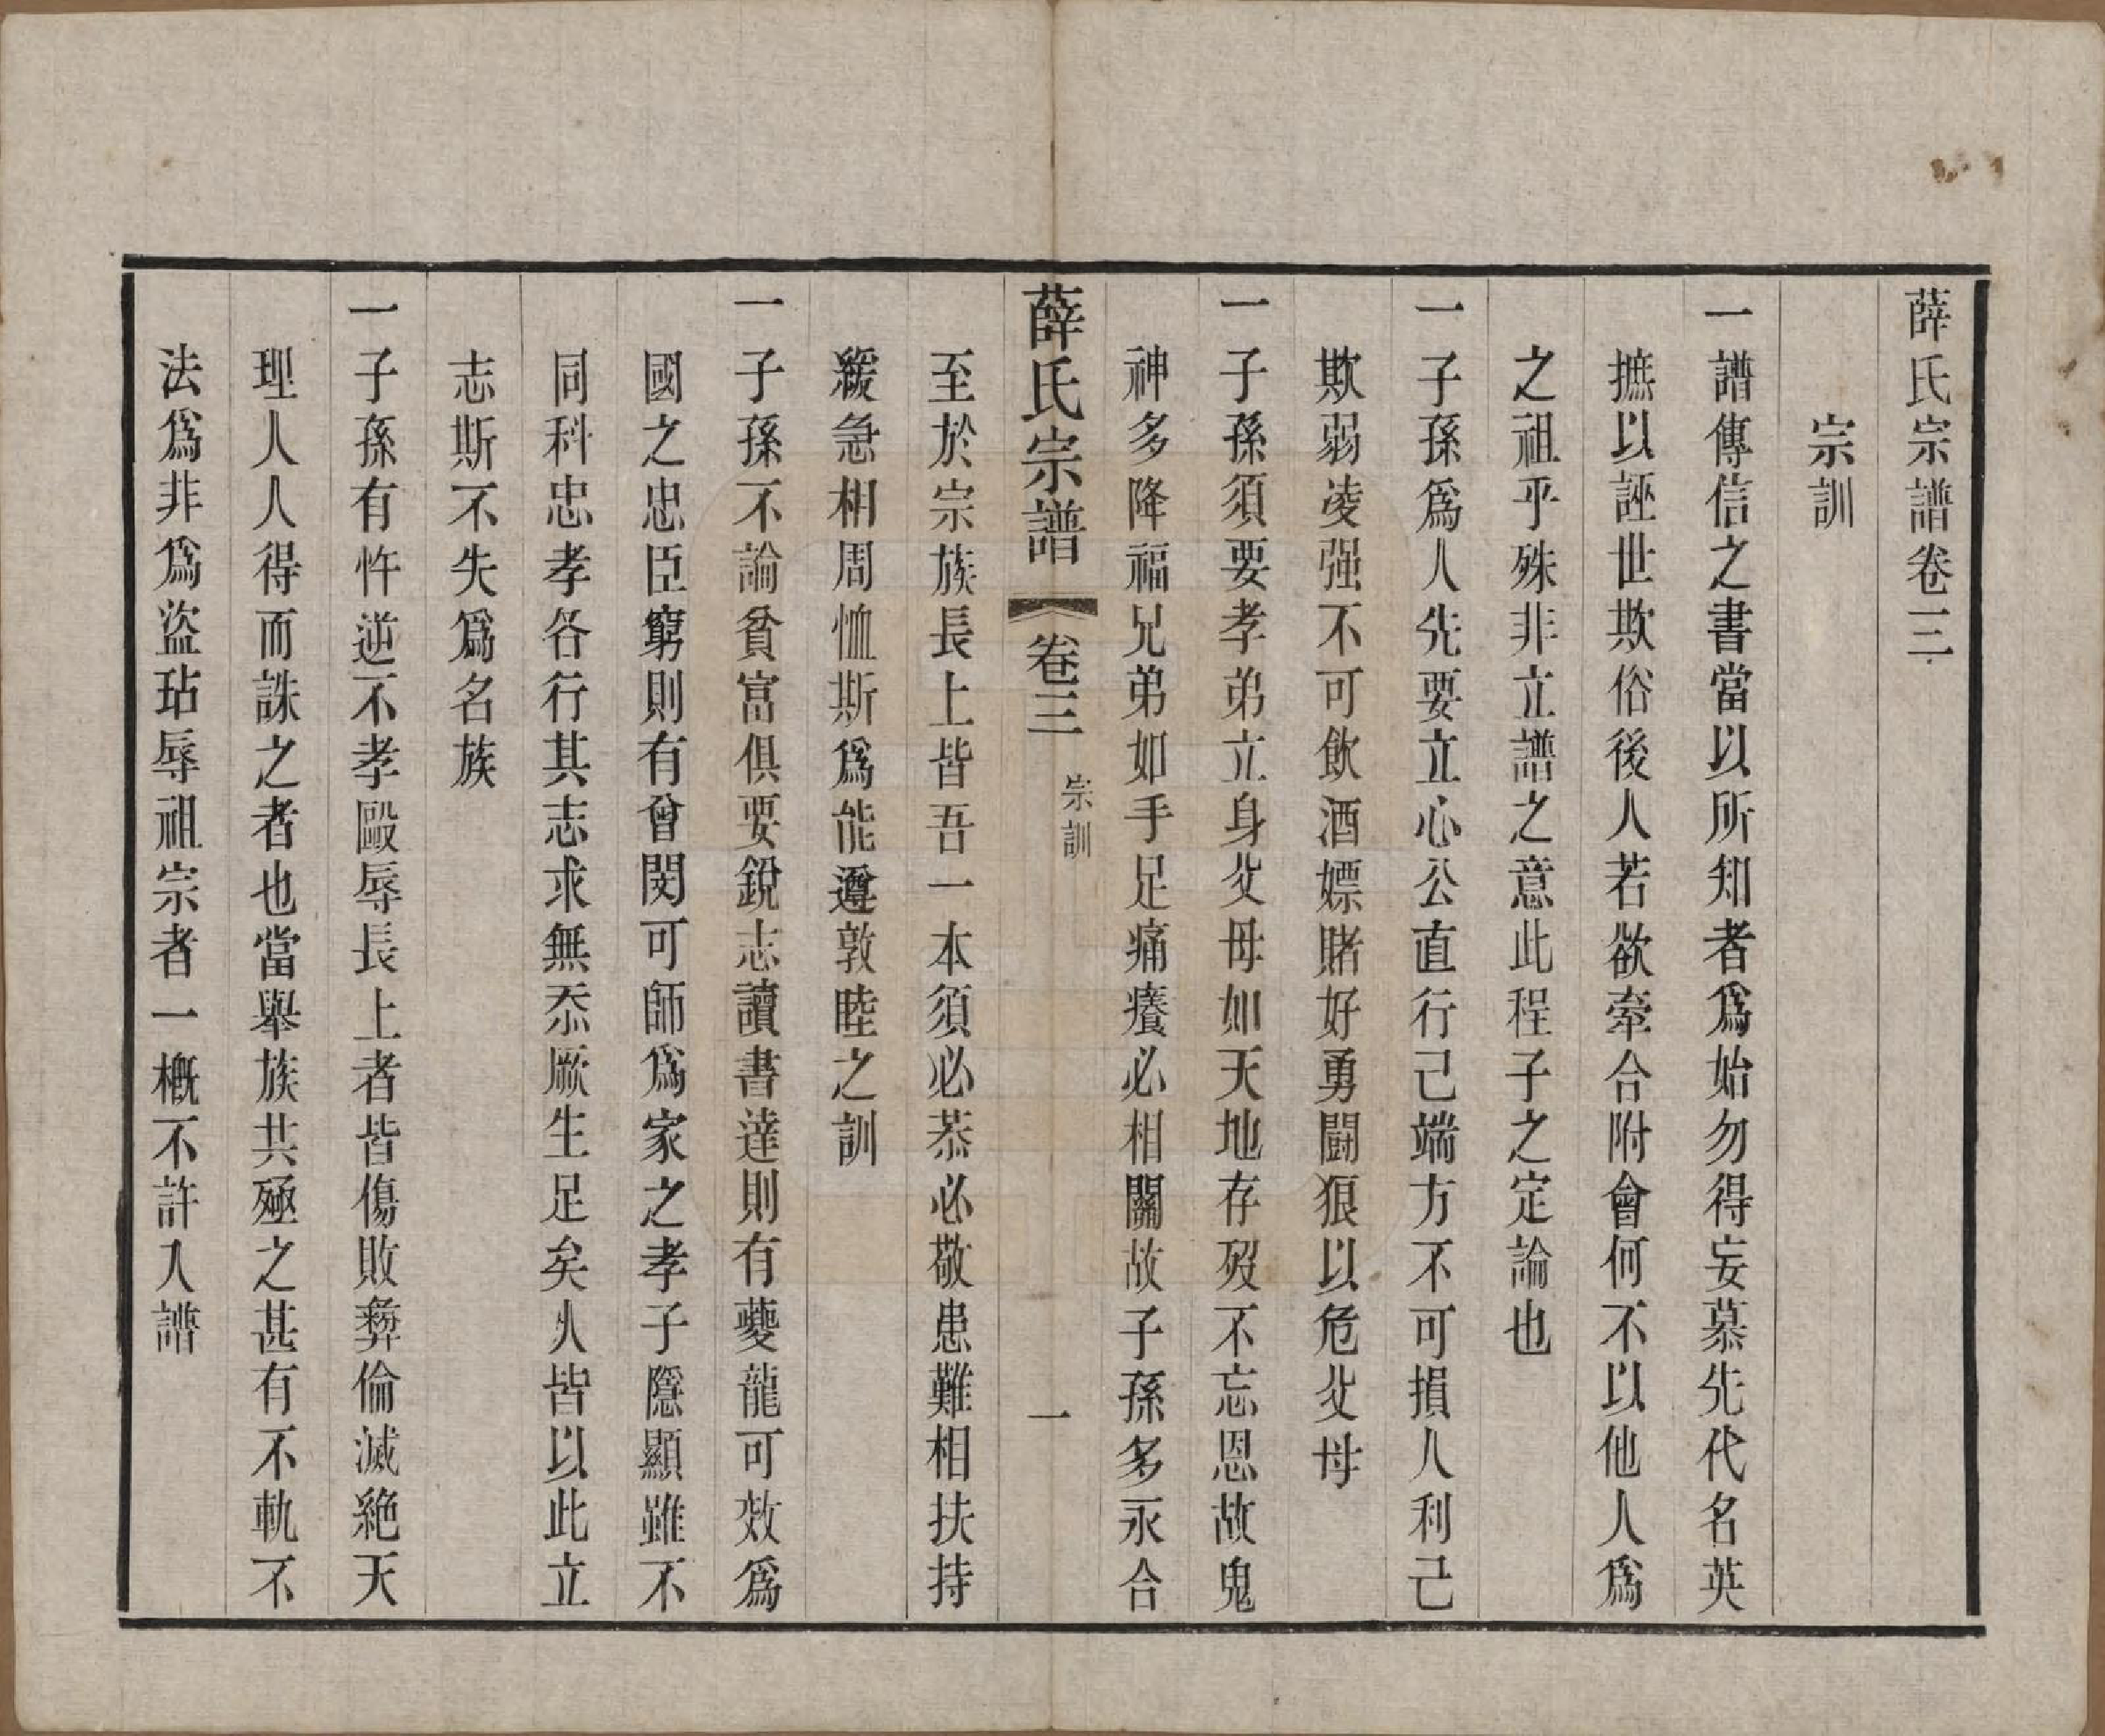 薛氏宗譜卷三
宗訓
一譜傳信之書當以所知者爲始勿得妄慕先代名英
摭以誣世欺俗後人若欲牽合附會何不以他人爲
之祖乎殊非立譜之意此程子之定論也
一子孫爲人先要立心公直行己端方不可損人利己
欺弱凌强不可飲酒嫖賭好勇鬬狠以危父母
一子孫須要孝弟立身父母如天地存歿不忘恩故鬼
神多降福兄弟如手足痛癢必相關故子孫多永合
薛氏宗譜 卷三 宗訓 一
至於宗族長上皆吾一本須必恭必敬患難相扶持
緩急相周恤斯爲能遵敦睦之訓
一子孫不論貧富俱要銳志讀書達則有夔龍可效爲
國之忠臣窮則有曾閔可師爲家之孝子隱顯雖不
同科忠孝各行其志求無忝厥生足矣人皆以此立
志斯不失爲名族
一子孫有忤逆不孝毆辱長上者皆傷敗彝倫滅絶天
理人人得而誅之者也當舉族共殛之甚有不軌不
法爲非爲盜玷辱祖宗者一槪不許入譜